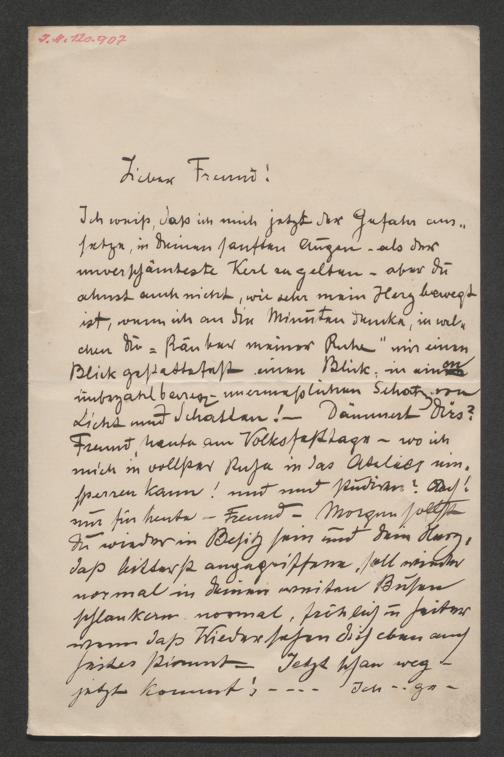 J.N. 120.907
Lieber Freund!
Ich weiß, daß ich mich jetzt der Gefahr aus-
setze, in deinen sanften Augen – als der
unverschämteste Kerl zu gelten – aber du
ahnst auch nicht, wie sehr mein Herz bewegt
ist, wenn ich an die Minuten denke, in wel-
chen du "Räuber meiner Ruhe" mir einen
Blick gestattetest einen Blick, in einen
unbezahlbaren unermeßlichen Schatz von
Licht und Schatten! – Dämmert dirs?
Freund, heute am Volksfesttage – wo ich
mich in vollster Ruhe in das Atelier ein-
sperren kann! und und studiren?
nur für heute – Freund – Morgen sollst
du wieder in Besitz sein und dein Herz,
das bitterst angegriffene, soll wieder
normal in deinem weiten Busen
schlenkern normal, fröhlich u heiter
wenn daß Wiedersehen dich eben auf
heiter stimmt – Jetzt schau weg –
jetzt kommt's – – – – Ich – . ge –